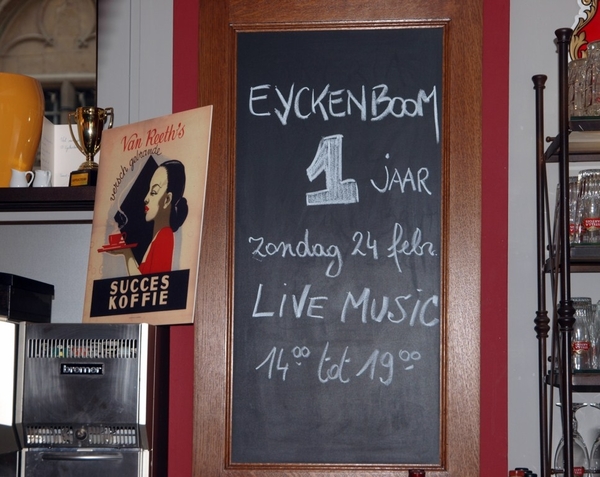 EYCKENBOOM
1 JAAR
zondag 24 febr.
LiVE MUSiC
14⁰⁰ tot 19⁰⁰
Van Reeth's
versch gebrande
SUCCES
KOFFIE
bremer